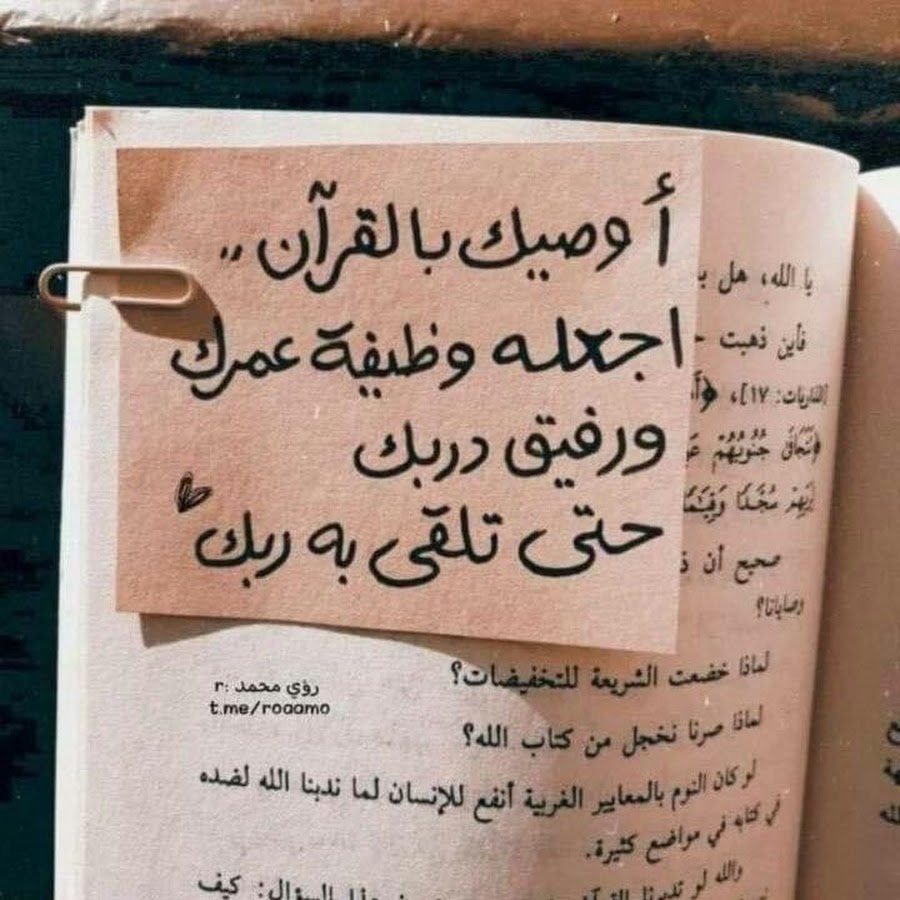 أوصيك بالقرآن ,,
اجعله وظيفة عمرك
ورفيق دربك
حتى تلقى به ربك
يا الله، هل
فأين ذهبت
[الذاريات: ١٧]،
جُنُوبُهُمْ
سُجَّدًا
صحيح أن
وصايانا؟
لماذا خضعت الشريعة للتخفيضات؟
رؤي محمد :r
t.me/roaamo
لماذا صرنا نخجل من كتاب الله؟
لو كان النوم بالمعايير الغربية أنفع للإنسان لما ندبنا الله لضده
في كتابه في مواضع كثيرة.
والله لو السؤال: كيف